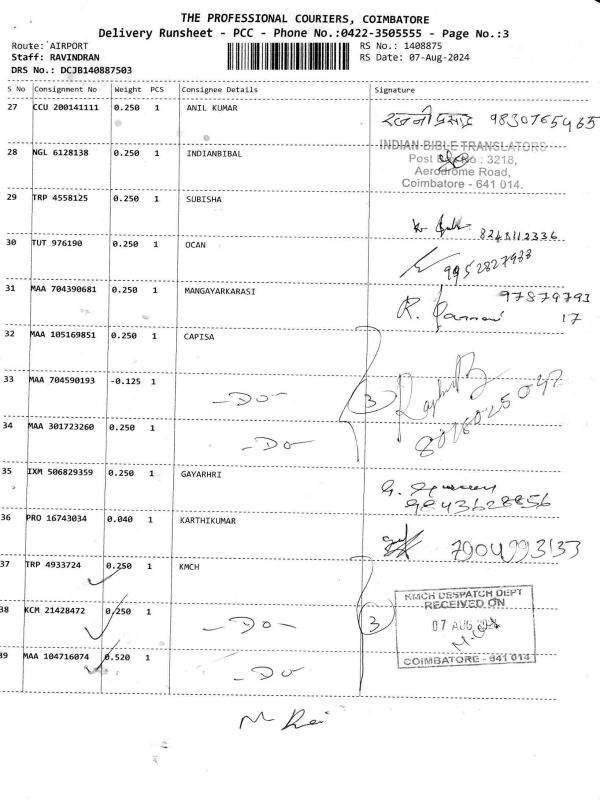 THE PROFESSIONAL COURIERS, COIMBATORE
Delivery Runsheet - PCC - Phone No.:0422-3505555 - Page No.:3
Route: AIRPORT RS No.: 1408875
Staff: RAVINDRAN RS Date: 07-Aug-2024
DRS No.: DCJB140887503
S No Consignment No Weight PCS Consignee Details Signature
27 CCU 200141111 0.250 1 ANIL KUMAR
9830765465
28 NGL 6128138 0.250 1 INDIANBIBAL
INDIAN BIBLE TRANSLATORS
Post Box No : 3218,
Aerodrome Road,
Coimbatore - 641 014.
29 TRP 4558125 0.250 1 SUBISHA
8248112336
30 TUT 976190 0.250 1 OCAN
9952827933
31 MAA 704390681 0.250 1 MANGAYARKARASI
97879793
17
32 MAA 105169851 0.250 1 CAPISA
33 MAA 704590193 -0.125 1 -Do- 3
8076025047
34 MAA 301723260 0.250 1 -Do-
35 IXM 506829359 0.250 1 GAYARHRI
9843628856
36 PRO 16743034 0.040 1 KARTHIKUMAR
7904993133
37 TRP 4933724 0.250 1 KMCH
KMCH DESPATCH DEPT
RECEIVED ON
38 KCM 21428472 0.250 1 -Do- 3
07 AUG
39 MAA 104716074 0.520 1 -Do-
COIMBATORE - 641 014